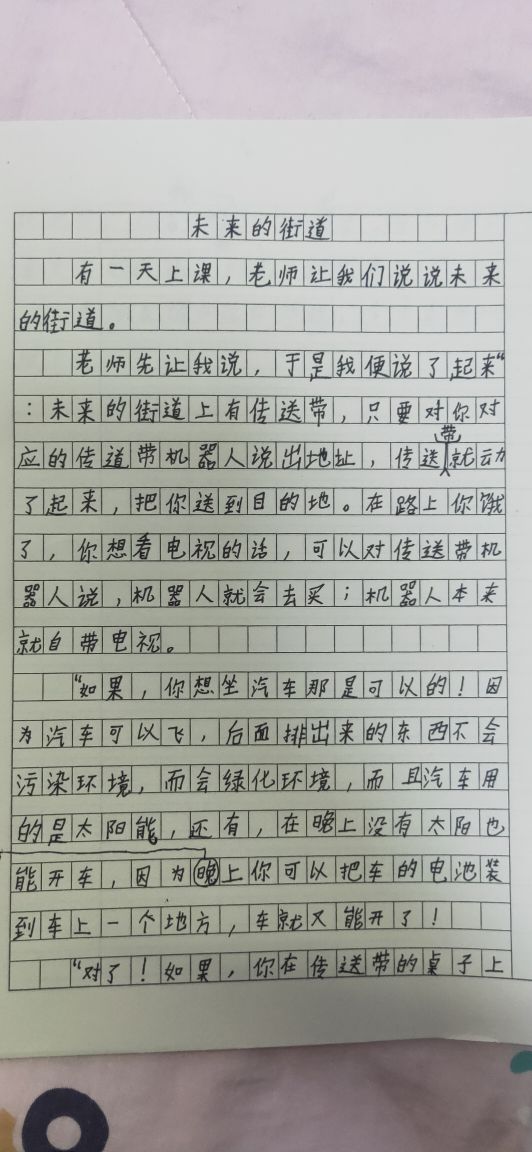 未来的街道
有一天上课，老师让我们说说未来
的街道。
老师先让我说，于是我便说了起来“
：未来的街道上有传送带，只要对你对
应的传道带机器人说出地址，传送带就动
了起来，把你送到目的地。在路上你饿
了，你想看电视的话，可以对传送带机
器人说，机器人就会去买；机器人本来
就自带电视。
“如果，你想坐汽车那是可以的！因
为汽车可以飞，后面排出来的东西不会
污染环境，而会绿化环境，而且汽车用
的是太阳能，还有，在晚上没有太阳也
能开车，因为晚上你可以把车的电池装
到车上一个地方，车就又能开了！
“对了！如果，你在传送带的桌子上